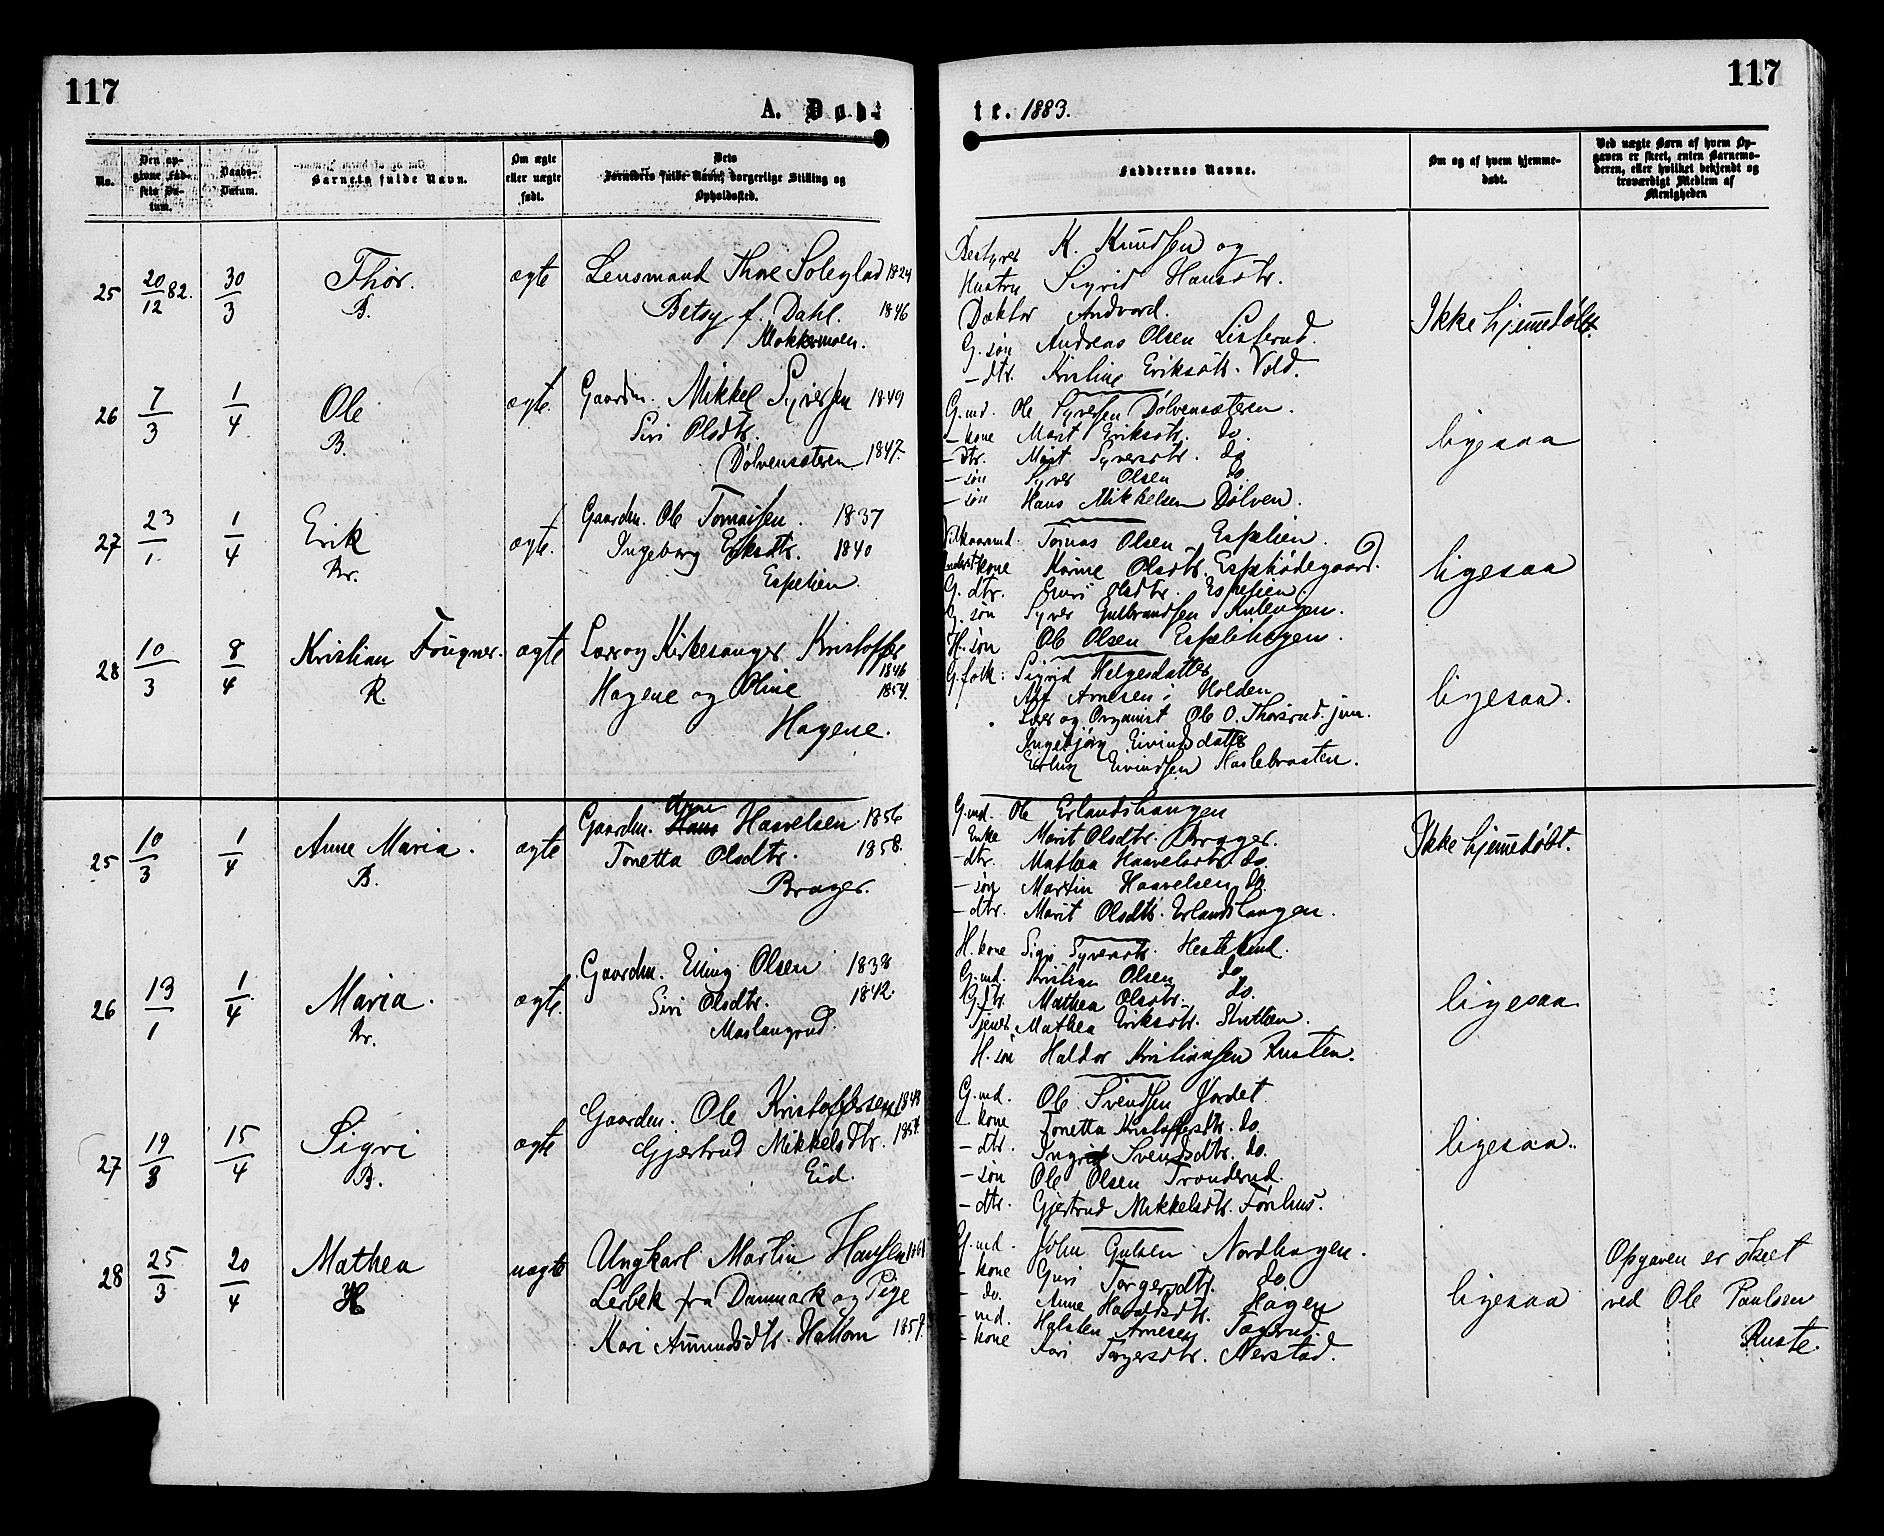 117
A. Døbte. 1883.
117
No.
Den opgivne Fødsels Datum.
Daabs-Datum.
Barnets fulde Navn.
Om ægte eller uægte født.
Dets Forældres fulde Navn, borgerlige Stilling og Opholdssted.
Faddernes Navne.
Om og af hvem hjemmedøbt.
Ved uægte Børn af hvem Opgaven er skeet, enten Barnemoderen, eller hvilket bekjendt og troværdigt Medlem af Menigheden
25 20/12 82. 30/3 Thor. B. ægte
Lensmand Thore Soleglad 1824
Betsy f. Dahl. 1846
Mokkemoen.
Bestyrer K. Knudsen og
Hustru Sigrid Hansdtr.
Doktor Andvord.
G. søn Andreas Olsen Listerud.
– dtr. Kristine Eriksdtr. Vold.
Ikke hjemedøbt.
26 7/3 1/4 Ole B. ægte.
Gaardm. Mikkel Syversen 1849
Siri Olsdtr.
Dølvensæteren 1847.
G.md. Ole Syversen Dølvensæteren.
– kone Marit Eriksdtr. do.
– dtr. Marit Syversdtr. do
– søn Syver Olsen do.
– søn Hans Mikkelsen Dølven.
ligesaa
27 23/1 1/4 Erik Br. ægte.
Gaardm. Ole Tomassen. 1837
Ingeborg Eriksdtr. 1840
Espelien.
Tomas Olsen Espelien.
kone Karine Olsdtr. Espehødegaard.
G. dtr. Guri Olsdtr. Espelien.
G. søn Syver Gulbrandsen
H. søn Ole Olsen Espelihagen.
ligesaa
28 10/3 8/4 Kristian Fougner. R. ægte
Lær. og Kirkesanger Kristoffer 1846
Hagene og Oline 1854.
Hagene.
G. folk: Sigrid Helgesdatter
Alf Arnesen i Holden
Lær og Organist Ole O. Thorsrud jun.
Ingebjørg Eivindsdatter
Erling Eivindsen Haslebraaten.
ligesaa.
25 10/3 1/4 Anne Maria. B. ægte
Gaardm. Arne Hans Haavelsen 1856
Tonetta Olsdtr. 1858.
Brager.
G.md. Ole Erlandshaugen
Enke Marit Olsdtr. Brager.
– dtr. Mathea Haavelsdtr. do.
– søn Martin Haavelsen do.
– dtr. Marit Olsdtr. Erlandshaugen.
Ikke hjemedøbt.
26 13/1 1/4 Maria. Br. ægte.
Gaardm. Elling Olsen 1838
Siri Olsdtr. 1842.
Maslangrud.
H. kone Sigri Syversdtr. Hestekind.
G.md. Kristian Olsen do
G. dtr. Mathea Olsdtr. do.
Tjener Mathea Eriksdtr.
H. søn Haldor Kristiansen Rusten.
ligesaa
27 19/3 15/4 Sigri B. ægte
Gaardm. Ole Kristoffersen 1848
Gjertrud Mikkelsdtr. 1854.
Eid.
G.md. Ole Svendsen Jordet.
– kone Tonetta Kristoffersdtr. do.
– dtr. Ingrid Svendsdtr. do.
– søn Ole Olsen Tronderud.
– dtr. Gjertrud Mikkelsdtr. Fønhus.
ligesaa.
28 25/3 20/4 Mathea H uægte
Ungkarl Martin Hansen
Lerbek fra Danmark og Pige
Kari Amundsdtr. Hattom 1859.
G.md. John Gulsen Nordhagen.
– kone Guri Torgersdtr. do.
– do. Anne Haraldsdtr. Hagen
– md. Halsten Arnesen
– kone Kari Torgersdtr. Nerstad.
ligesaa
Opgaven er skeet
ved Ole Paulsen
Ruste.